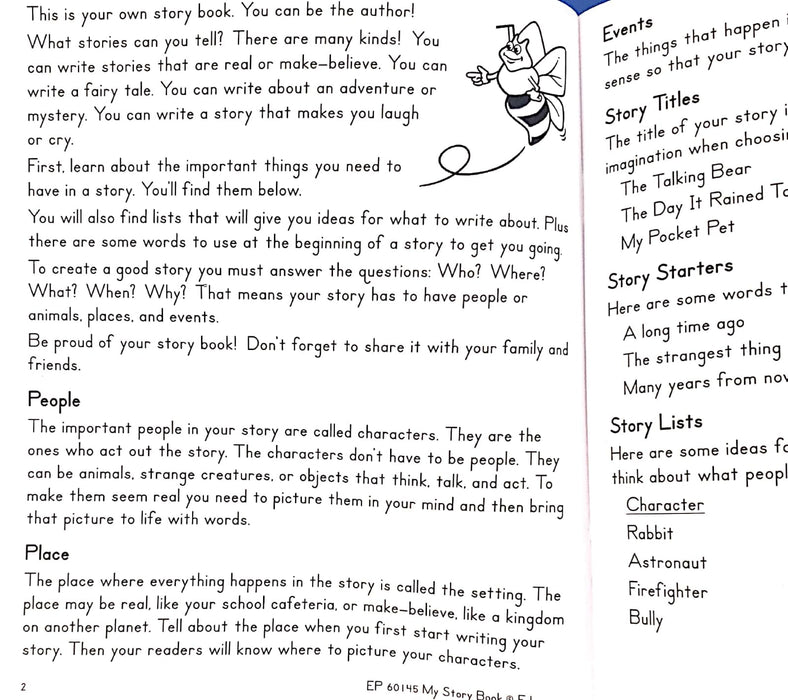 This is your own story book. You can be the author!
What stories can you tell? There are many kinds! You
can write stories that are real or make-believe. You can
write a fairy tale. You can write about an adventure or
mystery. You can write a story that makes you laugh
or cry.
First, learn about the important things you need to
have in a story. You'll find them below.
You will also find lists that will give you ideas for what to write about. Plus
there are some words to use at the beginning of a story to get you going.
To create a good story you must answer the questions: Who? Where?
What? When? Why? That means your story has to have people or
animals, places, and events.
Be proud of your story book! Don't forget to share it with your family and
friends.
People
The important people in your story are called characters. They are the
ones who act out the story. The characters don't have to be people. They
can be animals, strange creatures, or objects that think, talk, and act. To
make them seem real you need to picture them in your mind and then bring
that picture to life with words.
Place
The place where everything happens in the story is called the setting. The
place may be real, like your school cafeteria, or make-believe, like a kingdom
on another planet. Tell about the place when you first start writing your
story. Then your readers will know where to picture your characters.
2
EP 60145 My Story Book ©
Events
The things that happen
sense so that your story
Story Titles
The title of your story
imagination when
The Talking Bear
The Day It Rained
My Pocket Pet
Story Starters
Here are some words
A long time ago
The strangest thing
Many years from
Story Lists
Here are some ideas
think about what
Character
Rabbit
Astronaut
Firefighter
Bully